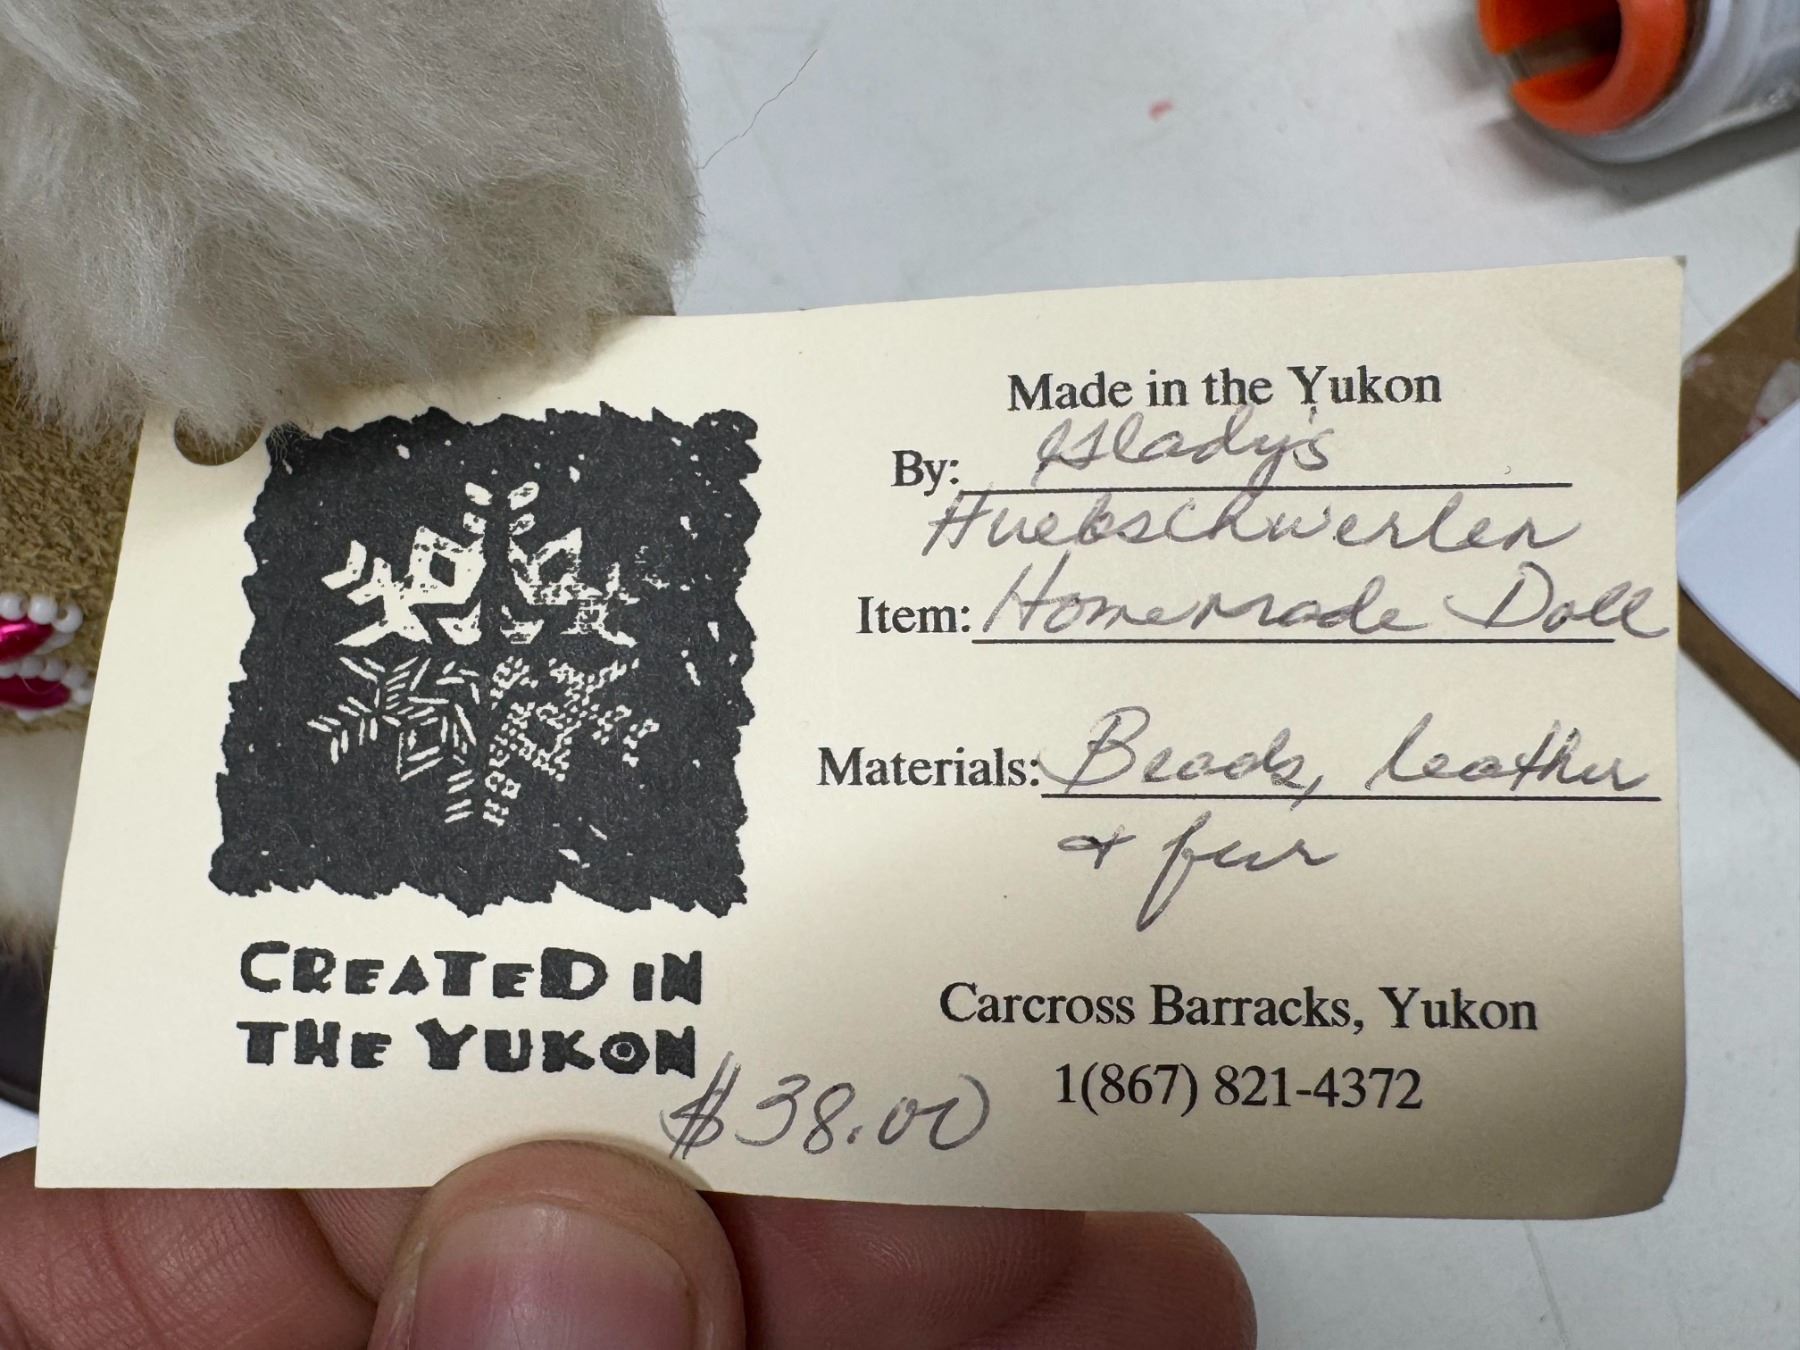 Made in the Yukon
By: Gladys
Huebschwerlen
Item: Homemade Doll
Materials: Beads, leather
& fur
Carcross Barracks, Yukon
1(867) 821-4372
CREATED IN
THE YUKON
$38.00